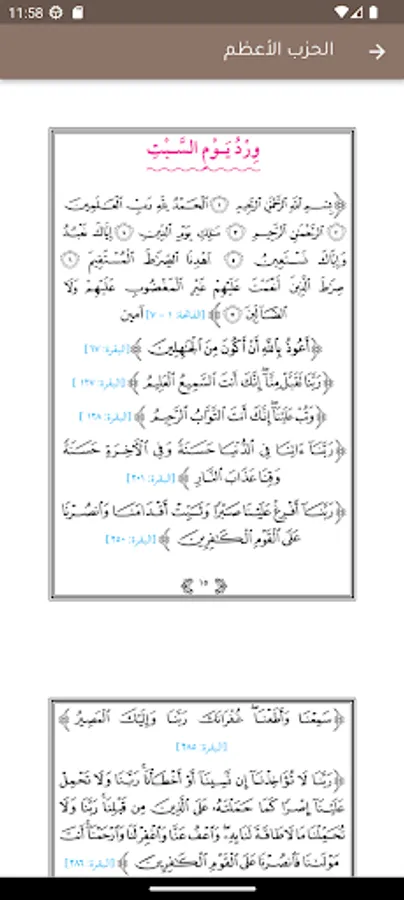 11:58
الحزب الأعظم
وِرْدُ يَوْمِ السَّبْتِ
﴿بِسْمِ اللَّهِ الرَّحْمَٰنِ الرَّحِيمِ ١ الْحَمْدُ لِلَّهِ رَبِّ الْعَالَمِينَ
٢ الرَّحْمَٰنِ الرَّحِيمِ ٣ مَالِكِ يَوْمِ الدِّينِ ٤ إِيَّاكَ نَعْبُدُ
وَإِيَّاكَ نَسْتَعِينُ ٥ اهْدِنَا الصِّرَاطَ الْمُسْتَقِيمَ ٦
صِرَاطَ الَّذِينَ أَنْعَمْتَ عَلَيْهِمْ غَيْرِ الْمَغْضُوبِ عَلَيْهِمْ وَلَا
الضَّالِّينَ ٧﴾ [الفاتحة: ١ - ٧] آمين
﴿أَعُوذُ بِاللَّهِ أَنْ أَكُونَ مِنَ الْجَاهِلِينَ﴾ [البقرة: ٦٧]
﴿رَبَّنَا تَقَبَّلْ مِنَّا إِنَّكَ أَنتَ السَّمِيعُ الْعَلِيمُ﴾ [البقرة: ١٢٧]
﴿وَتُبْ عَلَيْنَا إِنَّكَ أَنتَ التَّوَّابُ الرَّحِيمُ﴾ [البقرة: ١٢٨]
﴿رَبَّنَا ءَاتِنَا فِي الدُّنْيَا حَسَنَةً وَفِي الْآخِرَةِ حَسَنَةً
وَقِنَا عَذَابَ النَّارِ﴾ [البقرة: ٢٠١]
﴿رَبَّنَا أَفْرِغْ عَلَيْنَا صَبْرًا وَثَبِّتْ أَقْدَامَنَا وَانصُرْنَا
عَلَى الْقَوْمِ الْكَافِرِينَ﴾ [البقرة: ٢٥٠]
١٥
﴿سَمِعْنَا وَأَطَعْنَا غُفْرَانَكَ رَبَّنَا وَإِلَيْكَ الْمَصِيرُ﴾
[البقرة: ٢٨٥]
﴿رَبَّنَا لَا تُؤَاخِذْنَا إِن نَّسِينَا أَوْ أَخْطَأْنَا رَبَّنَا وَلَا تَحْمِلْ
عَلَيْنَا إِصْرًا كَمَا حَمَلْتَهُ عَلَى الَّذِينَ مِن قَبْلِنَا رَبَّنَا وَلَا
تُحَمِّلْنَا مَا لَا طَاقَةَ لَنَا بِهِ وَاعْفُ عَنَّا وَاغْفِرْ لَنَا وَارْحَمْنَا أَنتَ
مَوْلَانَا فَانصُرْنَا عَلَى الْقَوْمِ الْكَافِرِينَ﴾ [البقرة: ٢٨٦]